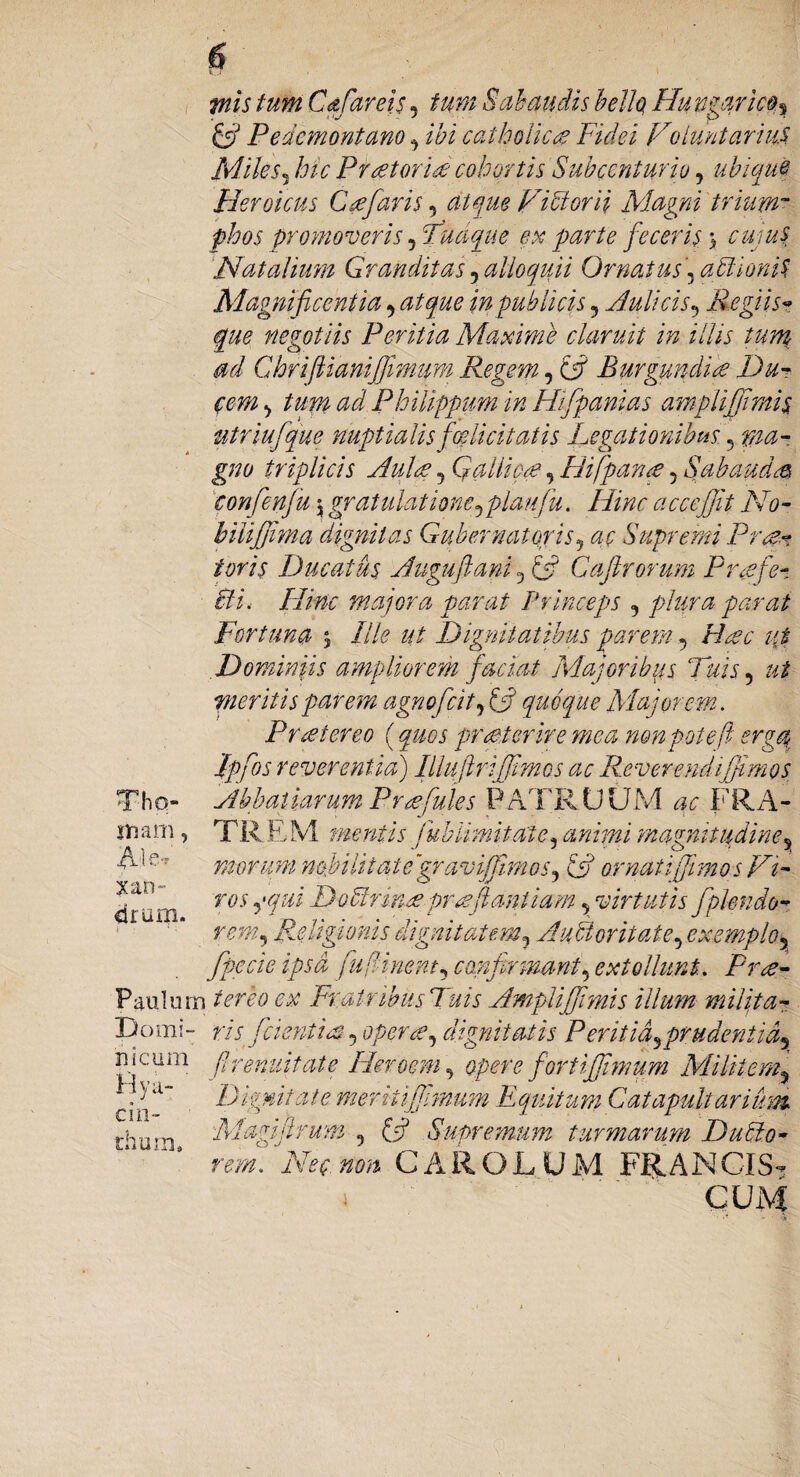 6
mis tum Cæſareis, tum Sabaudis bello Hungarico,
& Pedemontano, ibi catholicæ Fidei Voluntarius
Miles, hic Prætoriæ cohortis Subcenturio, ubique
Heroicus Cæſaris, atque Victorii Magni trium-
phos promoveris, Tuaque ex parte feceris; cujus
Natalium Granditas, alloquii Ornatus, actionis
Magnificentia, atque in publicis, Aulicis, Regiis-
que negotiis Peritia Maximè claruit in illis tum
ad Chriſtianiſſimum Regem, & Burgundiæ Du-
cem, tum ad Philippum in Hiſpanias ampliſſimis
utriuſque nuptialis fœlicitatis Legationibus, ma-
gno triplicis Aulæ, Gallicæ, Hiſpanæ, Sabaudæ
conſenſu; gratulatione, plauſu. Hinc acceſſit No-
biliſſima dignitas Gubernatoris, ac Supremi Præ-
toris Ducatûs Auguſtani, & Caſtrorum Præfe-
cti. Hinc majora parat Princeps, plura parat
Fortuna; Ille ut Dignitatibus parem, Hæc ut
Dominiis ampliorem faciat Majoribus Tuis, ut
meritis parem agnoſcit, & quòque Majorem.
Prætereo (quos præterire mea non poteſt erga
Ipſos reverentia) Illuſtriſſimos ac Reverendiſſimos
Abbatiarum Præſules PATRUUM ac FRA-
TREM mentis ſublimitate, animi magnitudine,
morum nobilitate graviſſimos, & ornatiſſimos Vi-
ros, qui Doctrinæ præſtantiam, virtutis ſplendo-
rem, Religionis dignitatem, Auctoritate, exemplo,
ſpecie ipsâ ſuſtinent, confirmant, extollunt. Præ-
tereo ex Fratribus Tuis Ampliſſimis illum milita-
ris ſcientiæ, operæ, dignitatis Peritiâ, prudentiâ,
ſtrenuitate Heroem, opere fortiſſimum Militem,
Dignitate meritiſſimum Equitum Catapultariûm
Magiſtrum, & Supremum turmarum Ducto-
rem. Nec non CAROLUM FRANCIS-
CUM
Tho-
mam,
Ale-
xan-
drum.
Paulum
Domi-
nicum
Hya-
cin-
thum.